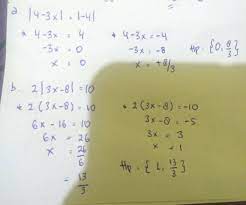 a. |4-3x| = |-4|
* 4-3x = 4 * 4-3x = -4
-3x = 0 -3x = -8
x = 0 x = +8/3
Hp = {0, 8/3}
b. 2|3x-8| = 10
* 2(3x-8) = 10 * 2(3x-8) = -10
6x-16 = 10 3x-8 = -5
6x = 26 3x = 3
x = 26/6 x = 1
= 13/3 Hp = { 1, 13/3 }